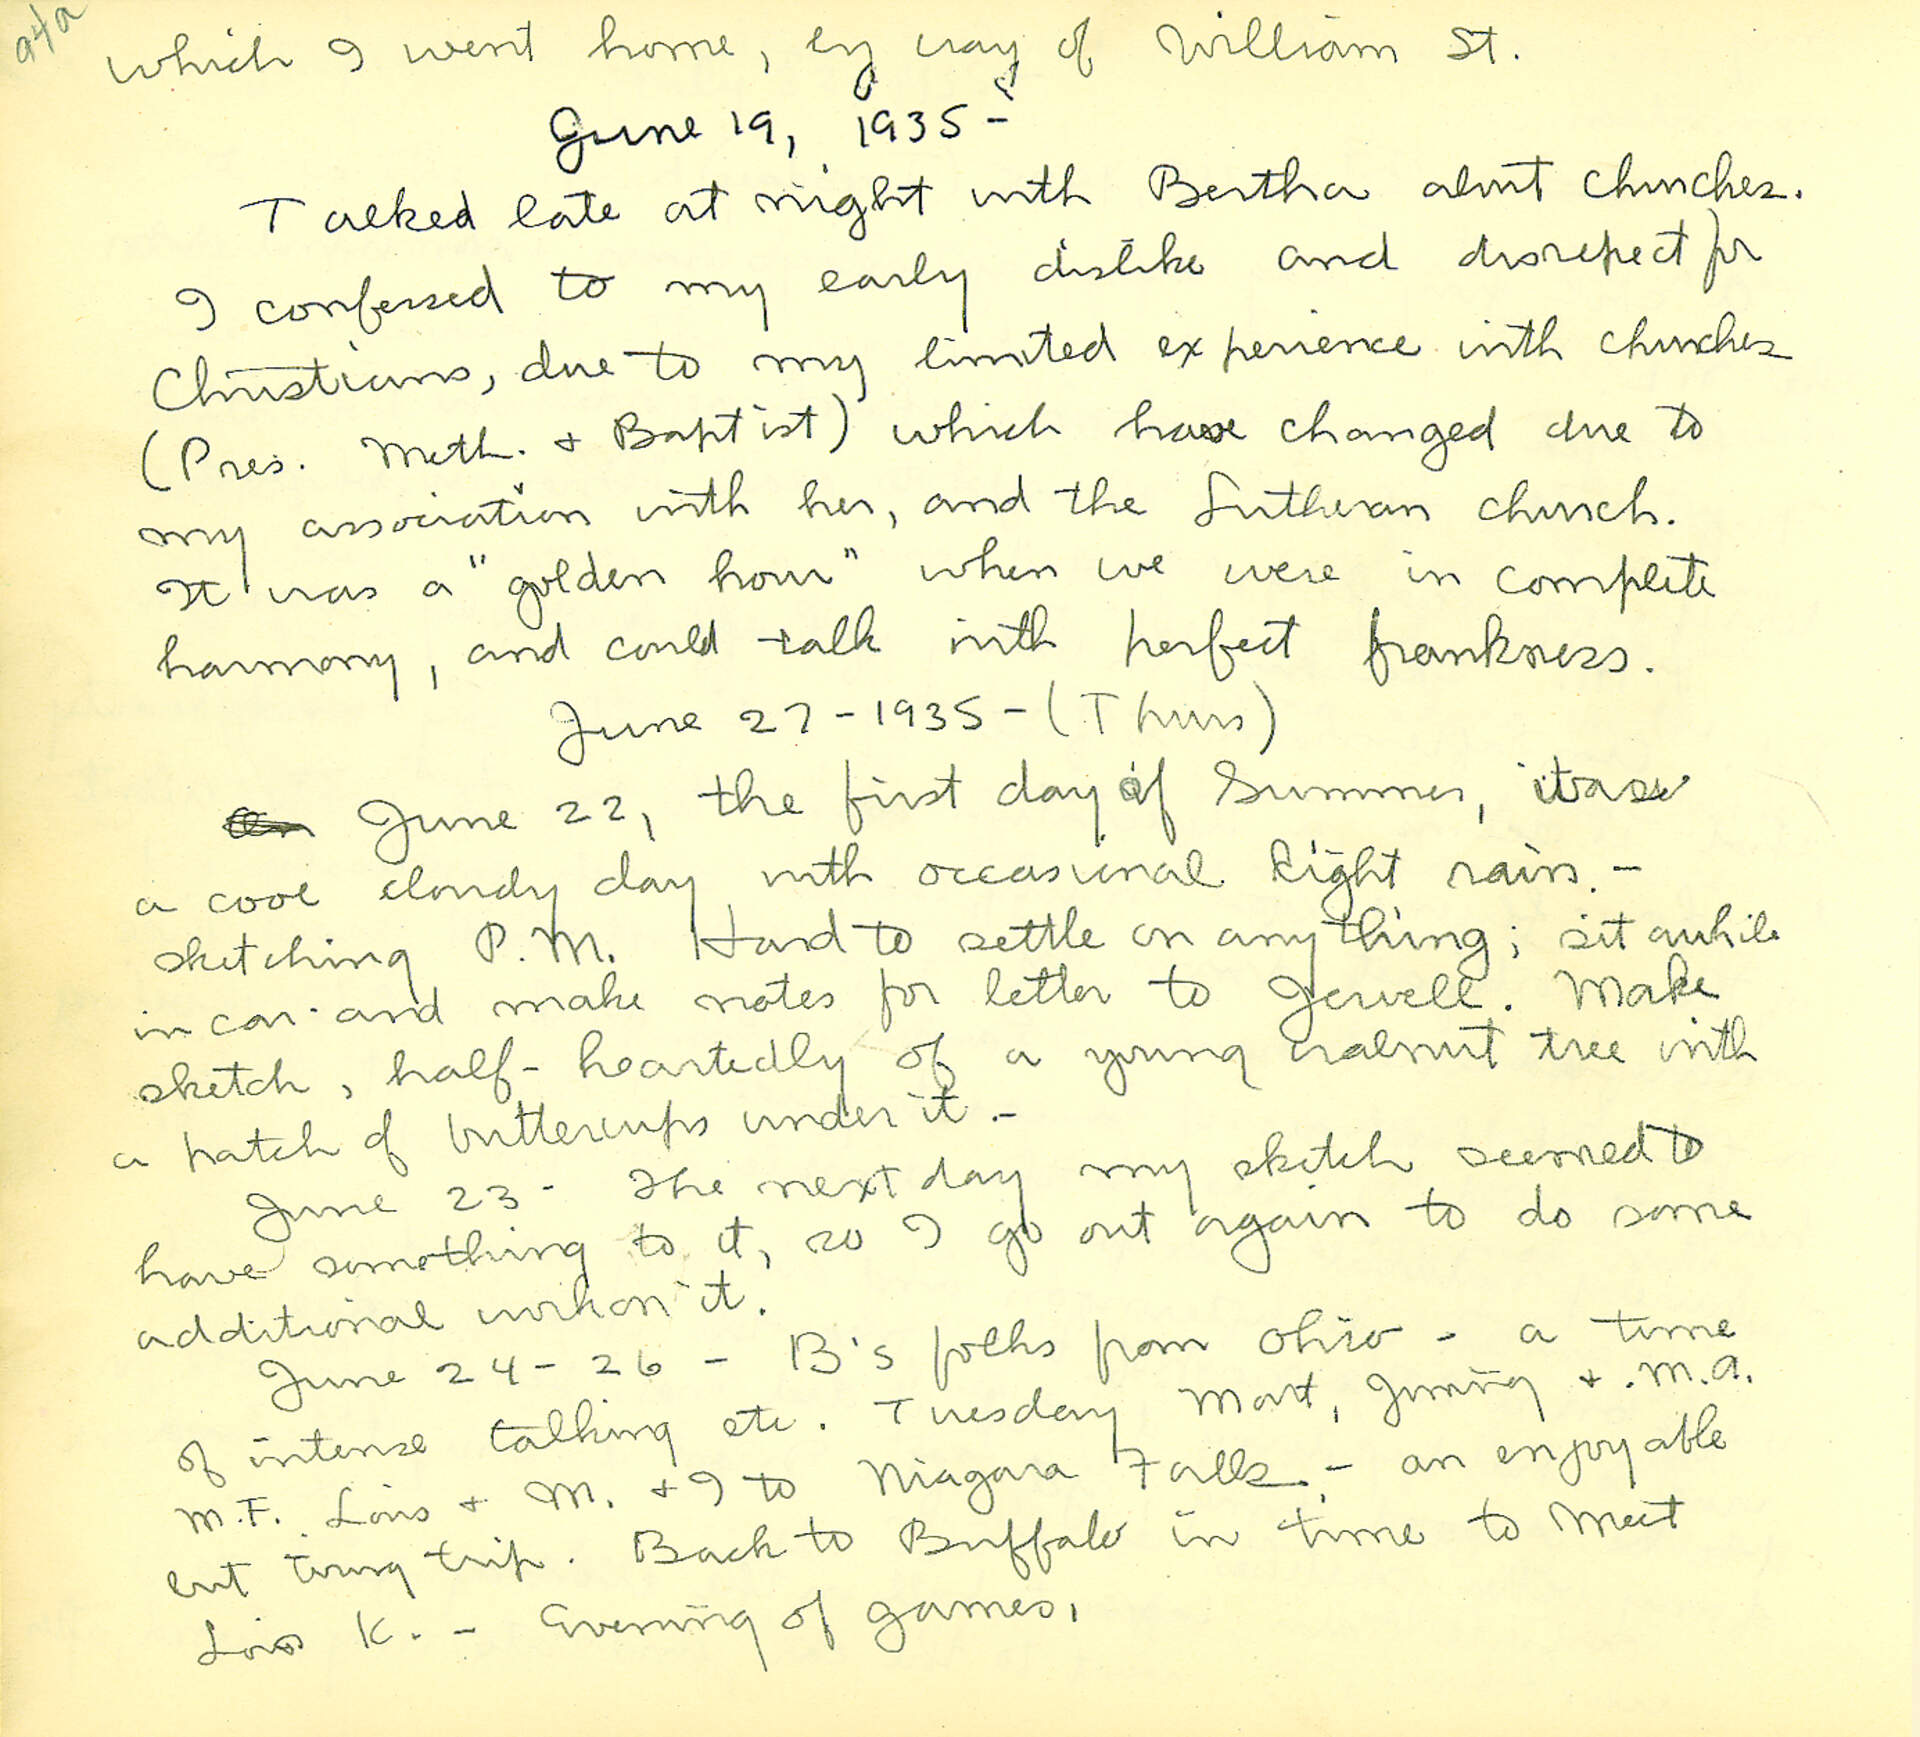 which I went home, by way of William St.
June 19, 1935 -
Talked late at night with Bertha about churches.
I confessed to my early dislike and disrepect for
Christians, due to my limited experience with churches
(Pres. Meth. + Baptist) which have changed due to
my association with her, and the Lutheran church.
It was a "golden hour" when we were in complete
harmony, and could talk with perfect frankness.
June 27 - 1935 - (Thurs)
June 22, the first day of Summer, it was
a cool cloudy day with occasional light rain. -
sketching P.M. Hard to settle on anything; sit awhile
in car and make notes for letter to Jewell. Make
sketch, half-heartedly of a young walnut tree with
a patch of buttercups under it. -
June 23 - The next day my sketch seemed to
have something to it, so I go out again to do some
additional work on it.
June 24 - 26 - B's folks from Ohio - a time
of intense talking etc. Tuesday Mart, Jimmy + M.A.
M.F. Lois + M. + I to Niagara Falls. - an enjoyable
but tiring trip. Back to Buffalo in time to meet
Lois K. - Evening of games.